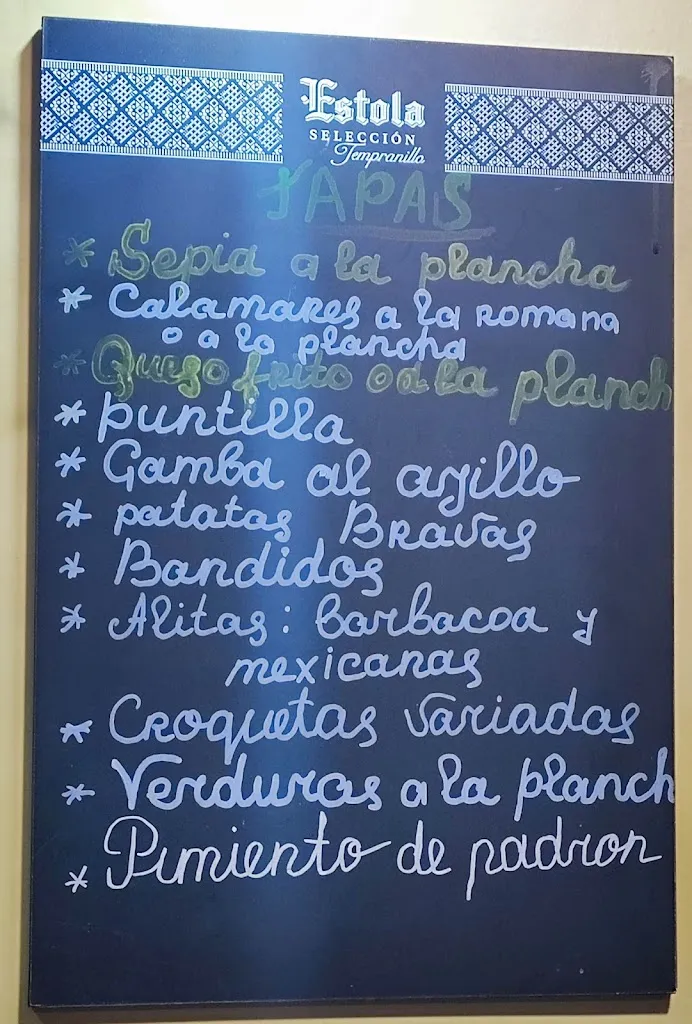 Estola
SELECCIÓN
Tempranillo
TAPAS
* Sepia a la plancha
* Calamares a la romana
o a la plancha
* Queso frito o a la planch
* puntilla
* Gamba al ajillo
* patatas Bravas
* Bandidos
* Alitas: barbacoa y
mexicanas
* Croquetas variadas
* Verduras a la planch
* Pimiento de padron